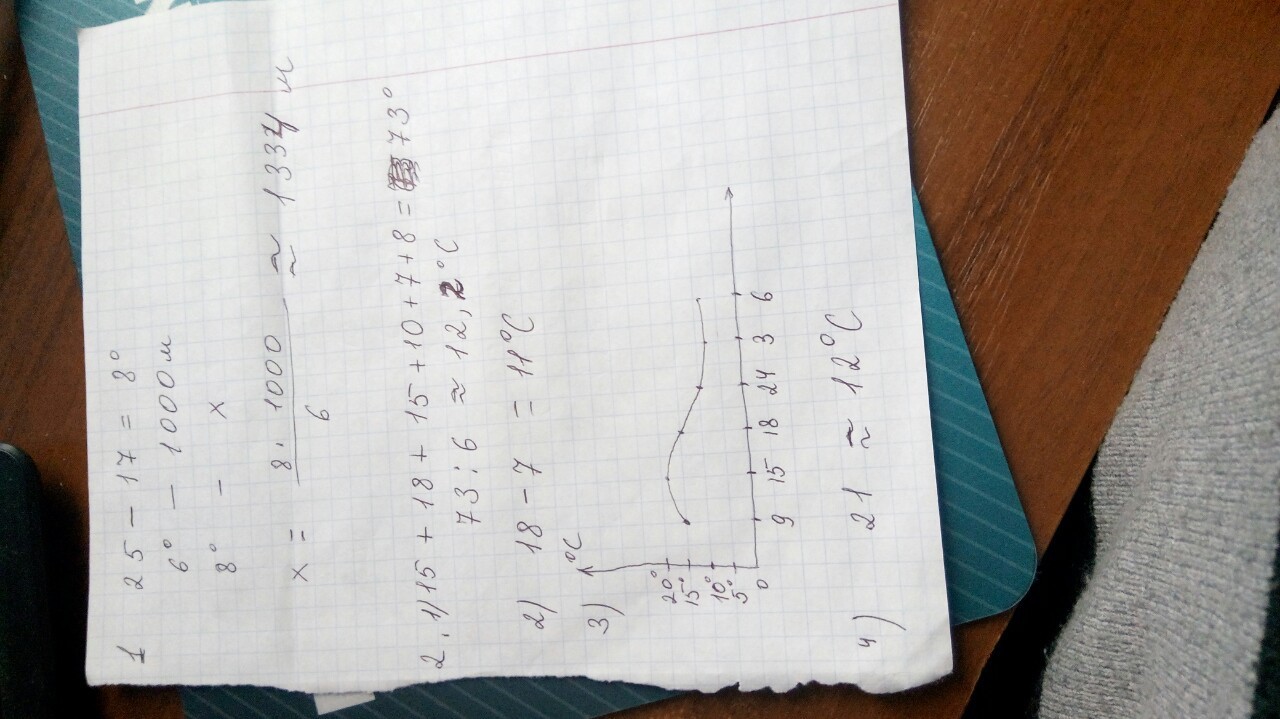 1 25 - 17 = 8°
6° - 1000 м
8° - x
x = 8 · 1000 / 6 ≈ 1334 м
2. 1) 15 + 18 + 15 + 10 + 7 + 8 = 73°
73 : 6 ≈ 12,2 °C
2) 18 - 7 = 11°C
3) °C
20°
15°
10°
5°
0
9 15 18 24 3 6
4) 21 ≈ 12°C